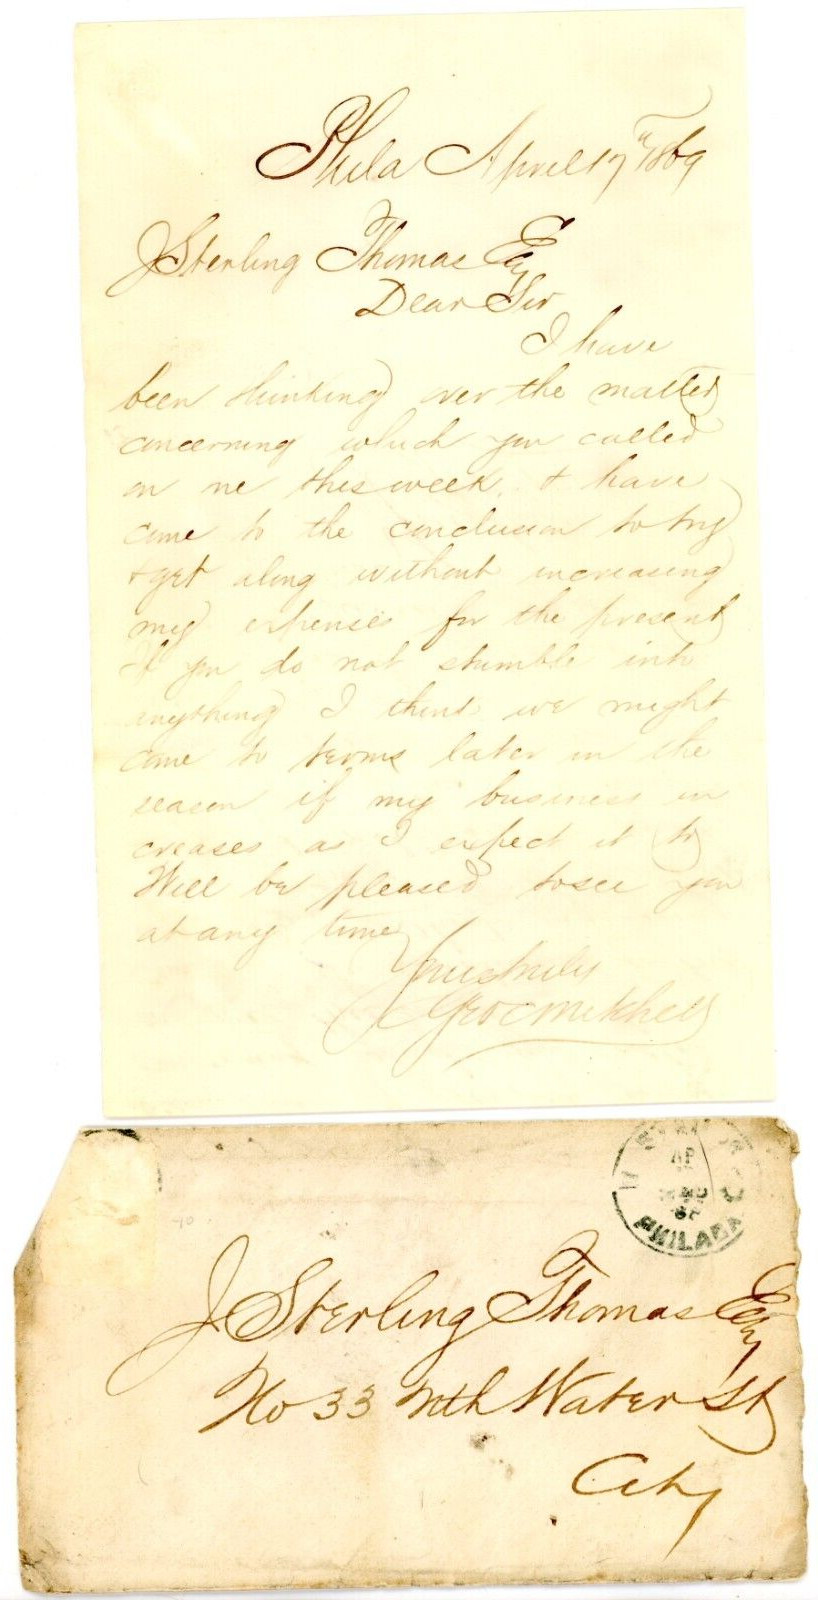 Phila April 17" 1869
J Sterling Thomas Esq
Dear Sir
I have
been thinking over the matter
concerning which you called
on me this week, & have
come to the conclusion to try
& get along without increasing
my expenses for the present
If you do not stumble into
anything I think we might
come to terms later in the
season if my business in
creases as I expect it to
Will be pleased to see you
at any time
Yours truly
Geo C Mitchell
AP
PHILADA
J Sterling Thomas Esq
No 33 Nth Water St
City